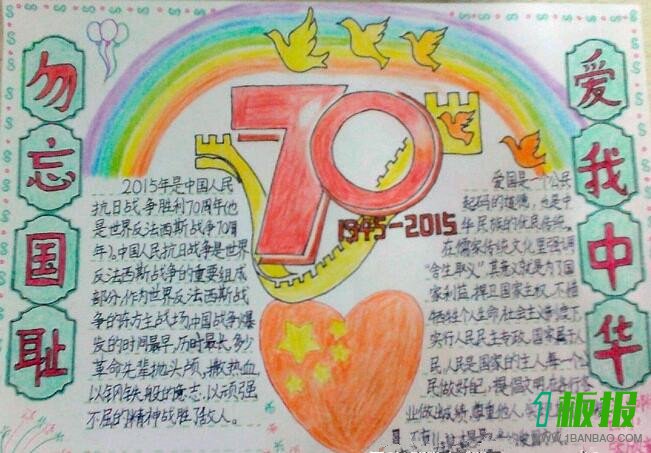 勿忘国耻
70
1945-2015
爱我中华
2015年是中国人民
抗日战争胜利70周年(也
是世界反法西斯战争70周
年)。中国人民抗日战争是世界
反法西斯战争的重要组成
部分,作为世界反法西斯战
争的东方主战场,中国战争爆
发的时间最早,历时最长,多少
革命先辈抛头颅,撒热血,
以钢铁般的意志,以顽强
不屈的精神战胜了敌人。
爱国是一个公民
起码的道德,也是中
华民族的优良传统。
在儒家传统文化里强调
"舍生取义",其意义就是为了国
家利益,捍卫国家主权,不惜
牺牲个人生命,社会主义制度下,
实行人民民主专政,国家属于人
民,人民是国家的主人,每一个公
民做好自己,提倡文明,在各行各
业做出成绩,尊重他人
1板报
WWW.1BANBAO.COM